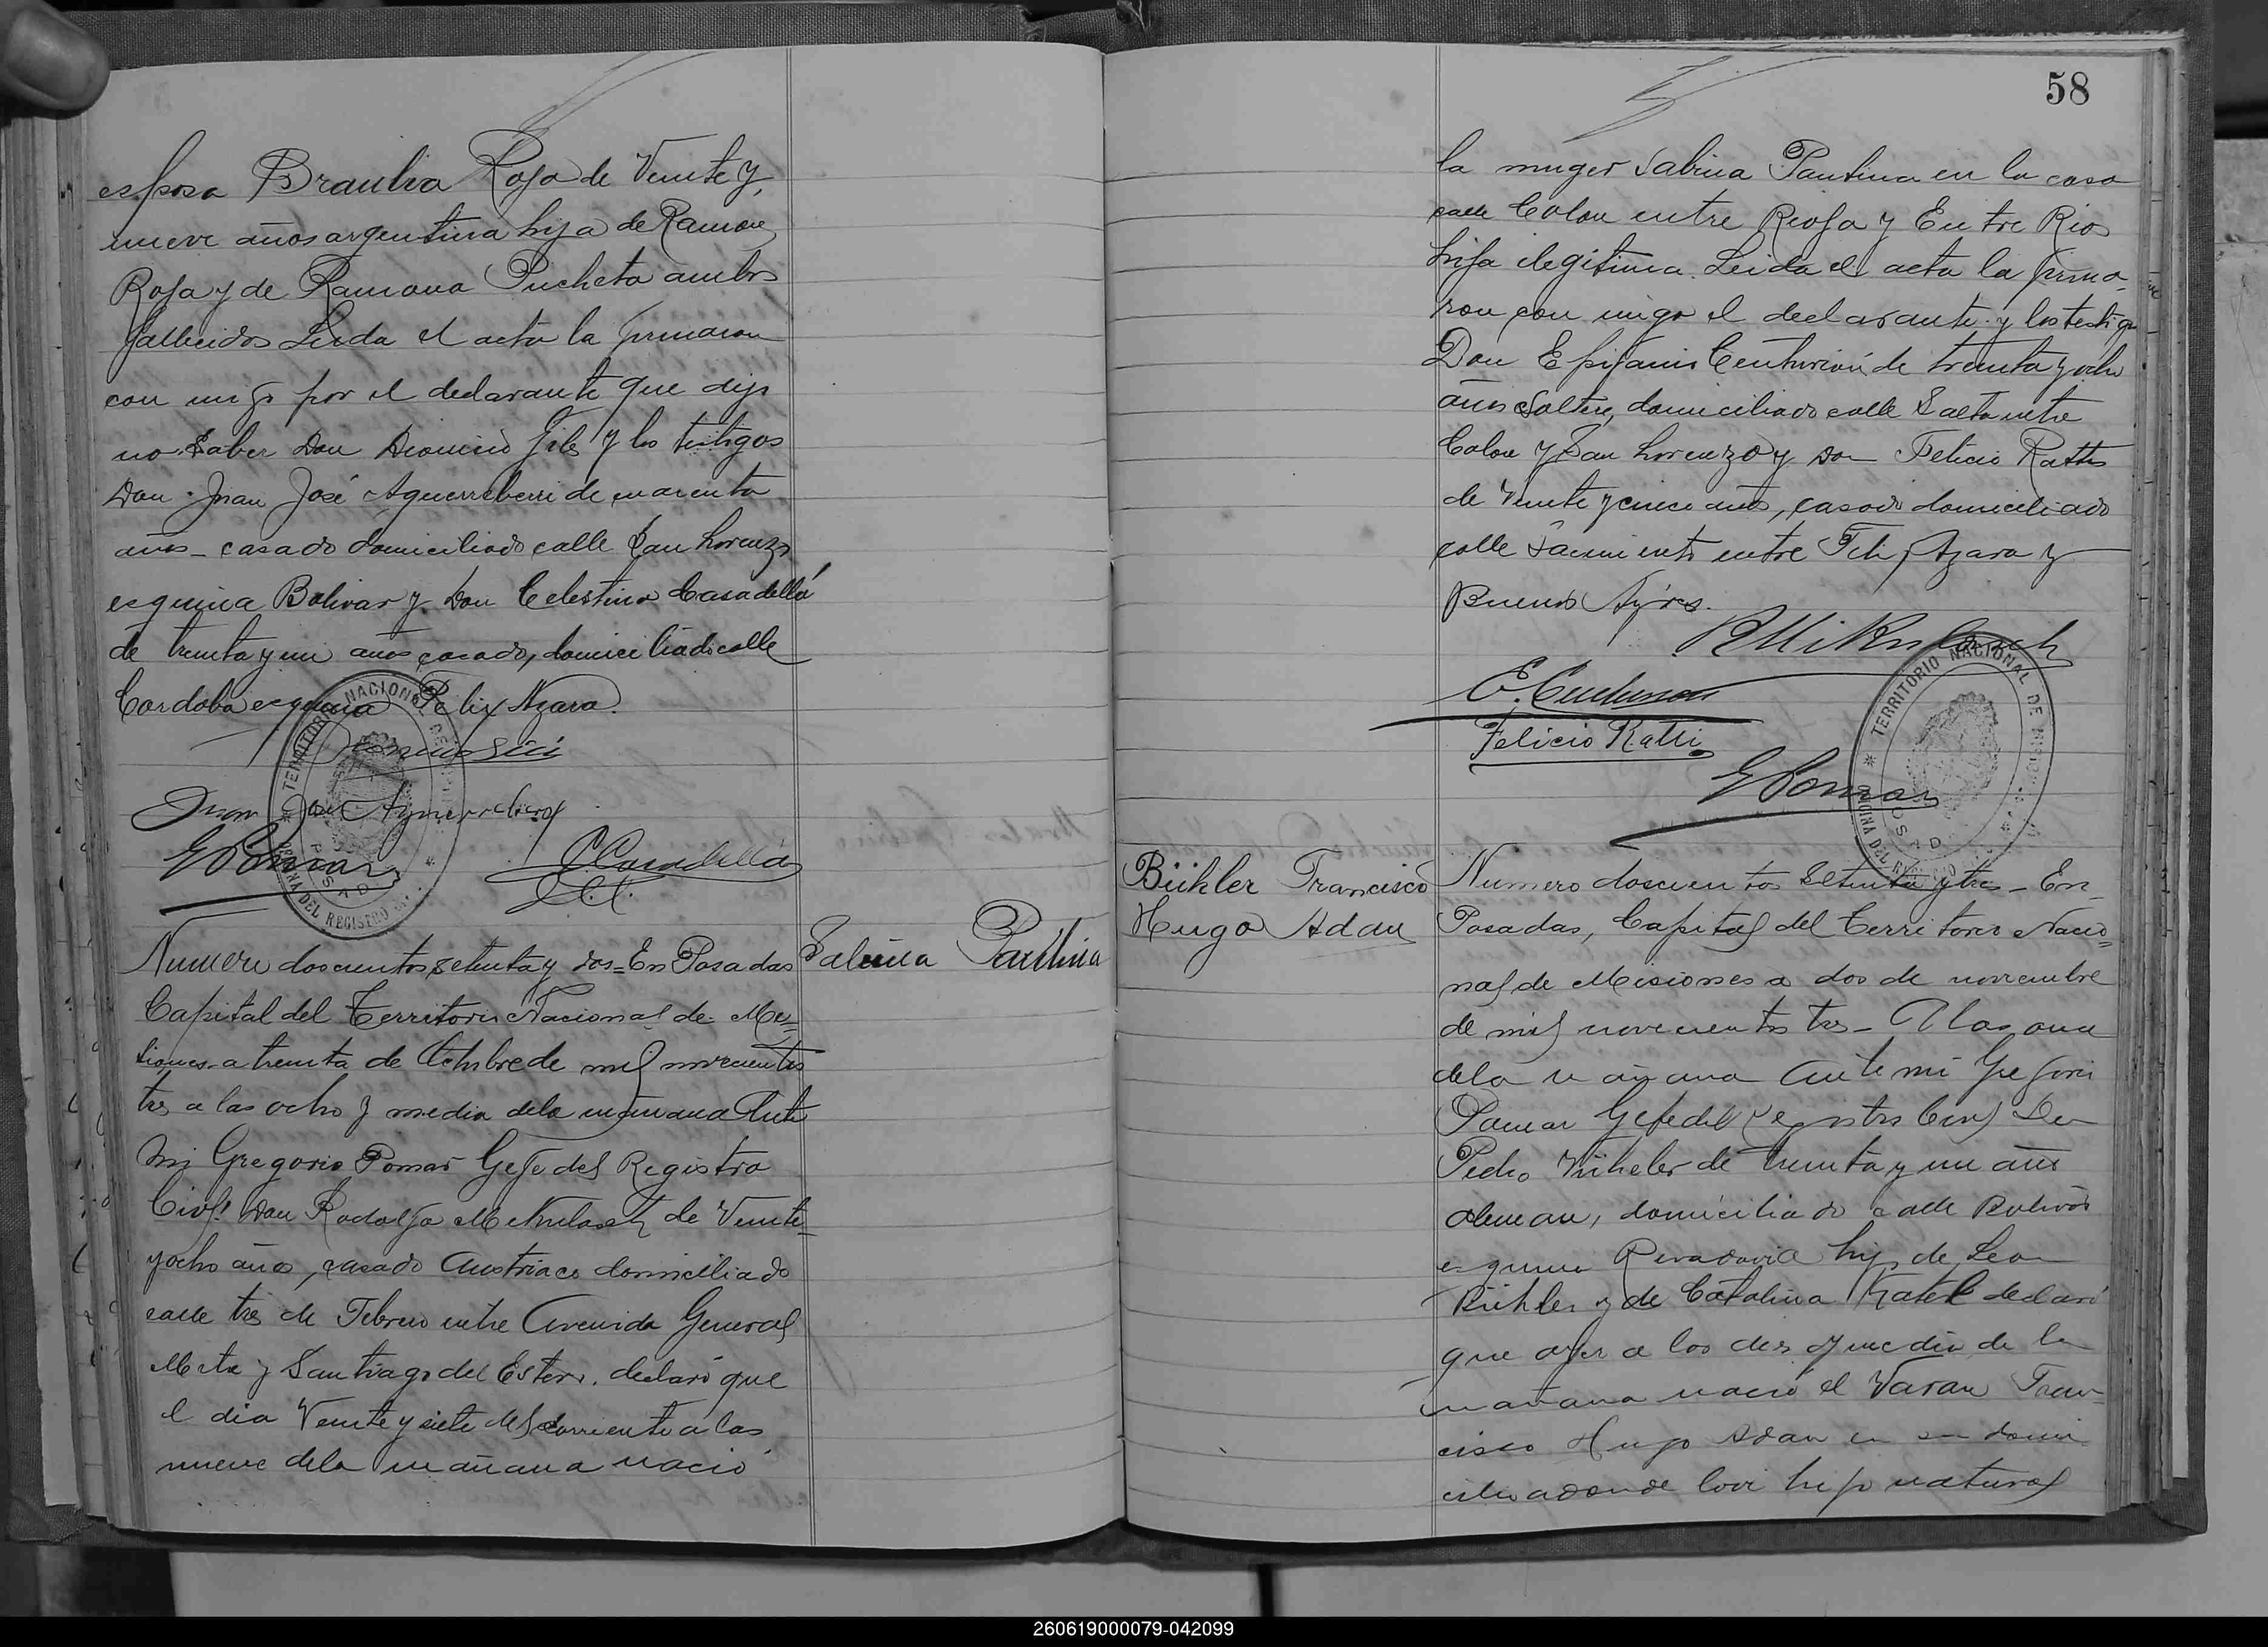 esposa Braulia Rosa de Veinte y
nueve años argentina hija de Ramon
Rosa y de Ramona Pucheta ambos
fallecidos Leida el acta la firmaron
con migo por el declarante que dijo
no saber Don Dionicio Gils y los testigos
Don Juan José Aguerreberri de cuarenta
años casado domiciliado calle San Lorenzo
esquina Bolivar y Don Celestino Casadellá
de treinta y un años casado, domiciliado calle
Cordoba esquina Felix Azara.
Juan José Aguerreberry
G Pomar
C Casadellá
TERRITORIO NACIONAL DE
OFICINA DEL REGISTRO
POSAD
Numero doscientos setenta y dos = En Posadas
Capital del Territorio Nacional de Mi-
siones a treinta de Octubre de mil novecientos
tres a las ocho y media dela mañana Ante
Mi Gregorio Pomar Gefe del Registro
Civil Don Rodolfo de Veinte
y ocho años, casado Austriaco domiciliado
calle tres de Febrero entre Avenida General
Mitre y Santiago del Estero. declaró que
el dia Veinte y siete del corriente a las
nueve dela mañana nació
Paulina
58
la muger Sabina Paulina en la casa
calle Colon entre Rioja y Entre Rios
hija ilegitima. Leida el acta la firma-
ron con migo el declarante y los testigos
Don Epifanio Centurión de treinta y ocho
años soltero, domiciliado calle Salta entre
Colon y San Lorenzo y Don Felicio Ratti
de Veinte y cinco años, casado domiciliado
calle Sarmiento entre Felix Azara y
Buenos Ayres.
E. Centurion
Felicio Ratti
G Pomar
TERRITORIO NACIONAL DE MISIONES
OFICINA DEL REGISTRO
POSAD
Bühler Francisco
Hugo Adan
Numero doscientos setenta y tres - En
Posadas, Capital del Territorio Nacio=
nal de Misiones a dos de noviembre
de mil novecientos tres - A las once
dela mañana Ante mi Gregorio
Pomar Gefe del Registro Civil Don
Pedro Bühler de treinta y un años
aleman, domiciliado calle Bolivar
esquina Rivadavia hijo de Leon
Bühler y de Catalina declaró
que ayer a las diez y media de la
mañana nació el Varon Fran-
cisco Hugo Adan en su domi
cilio hijo natural